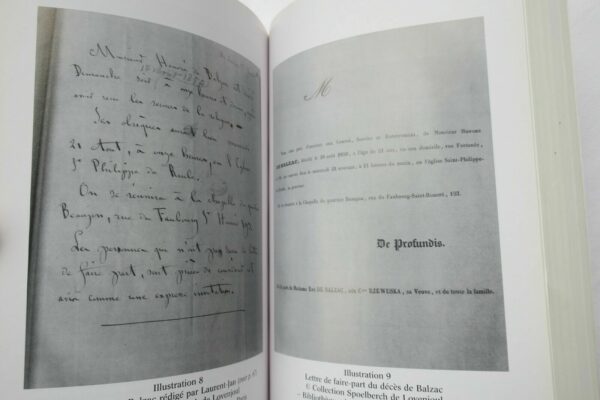 Monsieur Honoré de Balzac est mort
Dimanche soir, à onze heures et demie,
Ses obsèques auront lieu mercredi
21 Aout, à onze heures, en l'Eglise
St Philippe du Roule.
On se réunira à la chapelle du quartier
Beaujon, rue du Faubourg St Honoré
Les personnes qui n'ont pas reçu de lettre
de faire part, sont priées de considérer cet
avis comme une expresse invitation.
Illustration 8
Balzac rédigé par Laurent-Jan (voir p.
M
Vous êtes prié d'assister aux Convoi, Service et Enterrement, de Monsieur Honoré
DE BALZAC, décédé le 18 août 1850, à l'âge de 51 ans, en son domicile, rue Fortunée,
qui se feront le mercredi 21 courant, à 11 heures du matin, en l'église Saint-Philippe-
du-Roule, sa paroisse.
On se réunira à la Chapelle du quartier Beaujon, rue du Faubourg-Saint-Honoré, 193.
De Profundis.
De la part de Madame Eve DE BALZAC, née Ctesse RZEWUSKA, sa Veuve, et de toute la famille.
Illustration 9
Lettre de faire-part du décès de Balzac
© Collection Spoelberch de Lovenjoul